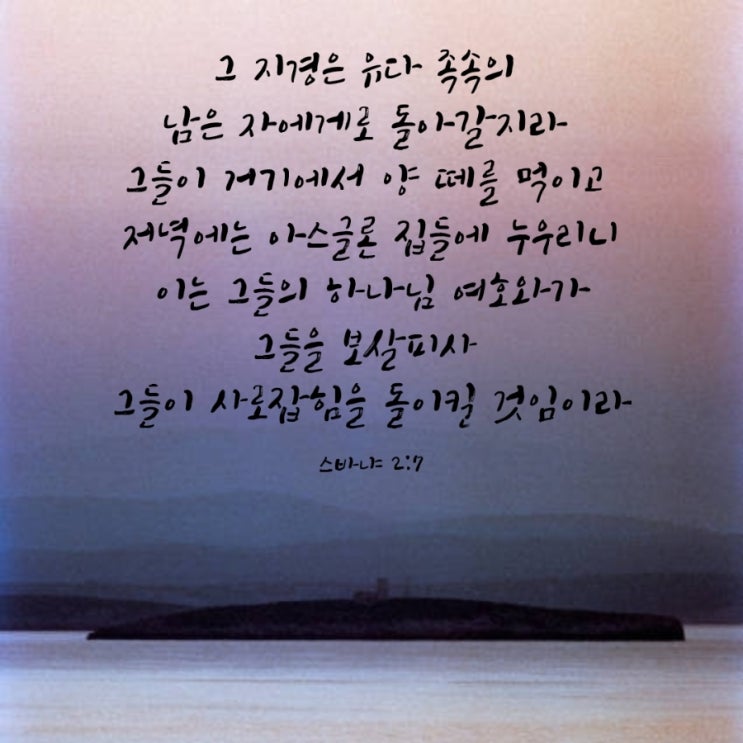 그 지경은 유다 족속의
남은 자에게로 돌아갈지라
그들이 거기에서 양 떼를 먹이고
저녁에는 아스글론 집들에 누우리니
이는 그들의 하나님 여호와가
그들을 보살피사
그들이 사로잡힘을 돌이킬 것임이라
스바냐 2:7